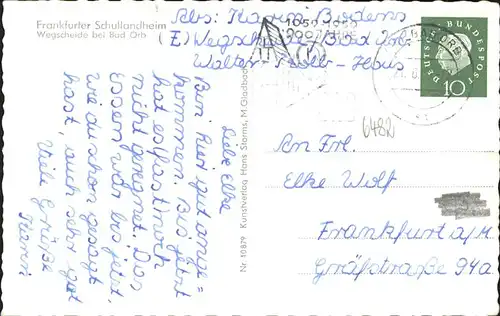 Frankfurter Schullandheim
Wegscheide bei Bad Orb
Abs: Karin
(E) Wegscheide Bad Orb
Walter-Kolb-Haus
1859-1959
DEUTSCHE BUNDESPOST
10
6482
Liebe Elke
Bin hier gut ange=
kommen. Bis jetzt
hat es fast noch
nicht geregnet. Das
Essen war bis jetzt,
wie du schon gesagt
hast, auch sehr gut
Viele Grüße
Karin
Nr. 10879 Kunstverlag Hans Storms, M.Gladbach
An Frl.
Elke Wolf
Frankfurt a/M.
Gräfstraße 94a